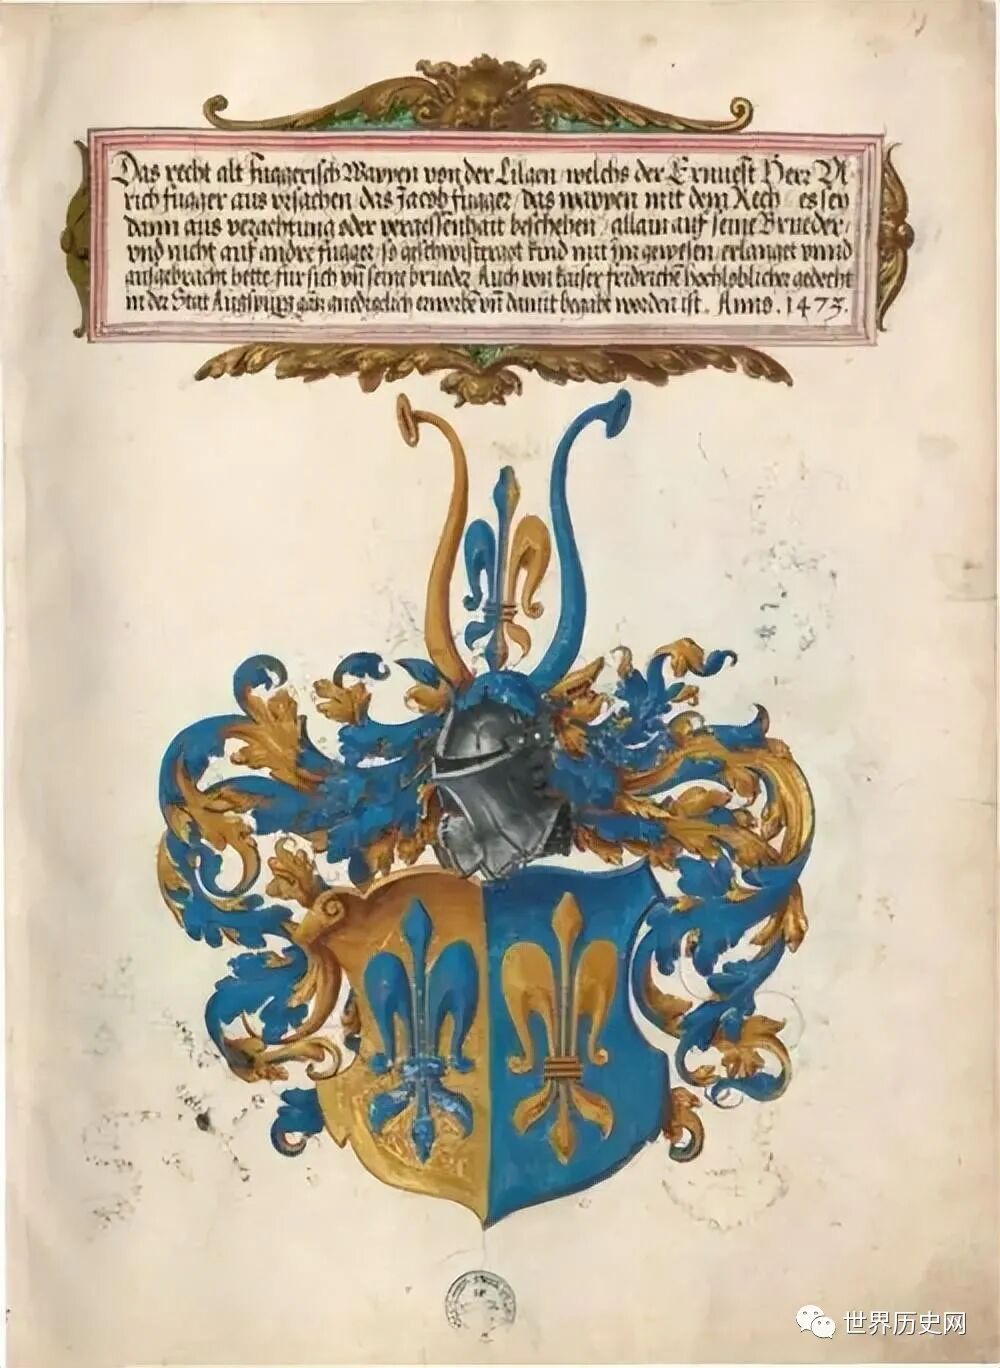 Das recht alt Fuggerisch Wappen von der Lilgen, welchs der Ernuest Herr Vl-
rich Fugger aus vrsachen, das Jacob Fugger, das wappen mit dem Rech, es sey
dann aus verachtung oder vergessenhait beschehen, allain auf seine Brueder,
vnd nicht auf andre Fugger, so geschwistergot kind mit jm gewesen, erlanget vnnd
ausgebracht hette, für sich vn̄ seine brueder, Auch von kaiser fridrichen̄ hochloblicher gedecht
in der Stat Augspurg gantz gnedigclich erworbē vn̄ damit begabt worden ist. Anno. 1473.
世界历史网